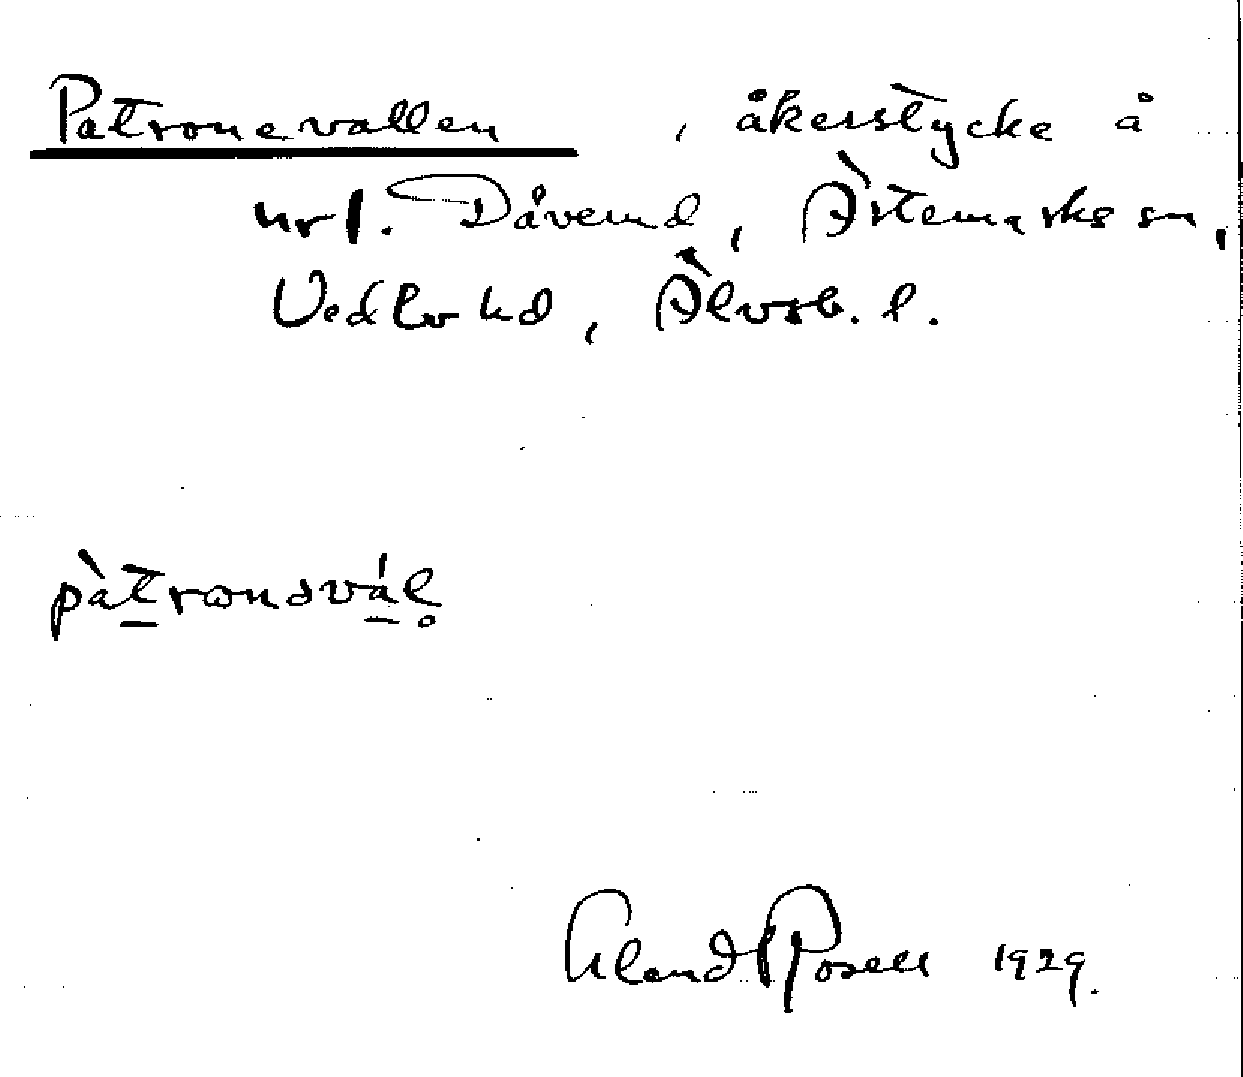 Patronevallen , åkerstycke å
nr 1. Dåverud, Ärtemarks sn,
Vedbo hd, Älvsb. l.
pàtronavál
Erland Rosell 1929.